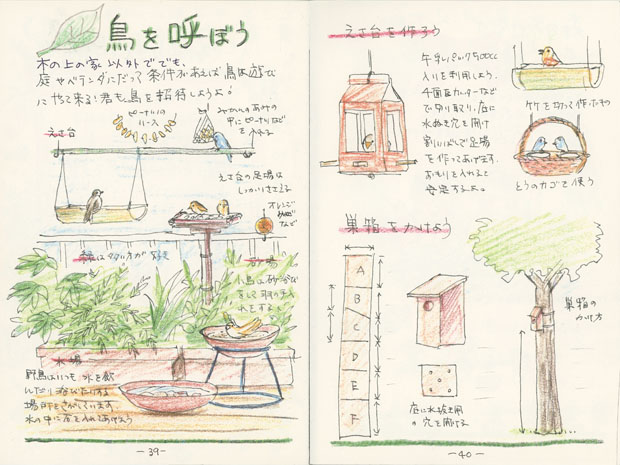 鳥を呼ぼう
木の上の家以外でも、
庭やベランダにだって条件があえば鳥は遊び
にやって来る!君も鳥を招待しようよ!
ピーナツの
リース
みかんのあみの
中にピーナツなど
を入れる
えさ台
えさ台の足場は
しっかりささえる
オレンジ
など
緑は多い方が
砂場
小鳥は砂浴び
をして羽の手入
れをする
水場
野鳥はいつも水を飲
んだり浴びたりする
場所をさがしています。
水の中に石を入れてあげよう
-39-
えさ台を作ろう
牛乳パック500cc
入りを利用しよう。
4面をカッターなど
で切り取り、底に
水ぬき穴を開け
割りばしで足場
を作ってあげます。
おもりを入れると
安定するよ。
竹を切って作ったもの
とうのカゴを使う
巣箱をかけよう
A
B
C
D
E
F
底に水抜き用
の穴を開ける
巣箱の
かけ方
-40-